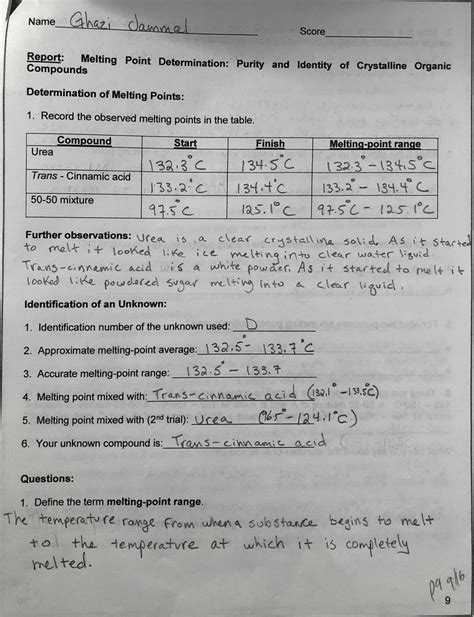 Name Ghazi Jammal Score
Report: Melting Point Determination: Purity and Identity of Crystalline Organic
Compounds
Determination of Melting Points:
1. Record the observed melting points in the table.
Compound Start Finish Melting-point range
Urea 132.3°C 134.5°C 132.3°-134.5°C
Trans - Cinnamic acid 133.2°C 134.4°C 133.2° - 134.4°C
50-50 mixture 97.5°C 125.1°C 97.5°C - 125.1°C
Further observations: Urea is a clear crystalline solid. As it started
to melt it looked like ice melting into clear water liquid
Trans-cinnamic acid is a white powder. As it started to melt it
looked like powdered sugar melting into a clear liquid.
Identification of an Unknown:
1. Identification number of the unknown used: D
2. Approximate melting-point average: 132.5°- 133.7°C
3. Accurate melting-point range: 132.5° - 133.7
4. Melting point mixed with: Trans-cinnamic acid (132.1° -133.5°C)
5. Melting point mixed with (2nd trial): Urea (96.5°-124.1°C)
6. Your unknown compound is: Trans-cinnamic acid
Questions:
1. Define the term melting-point range.
The temperature range from when a substance begins to melt
to the temperature at which it is completely
melted.
9